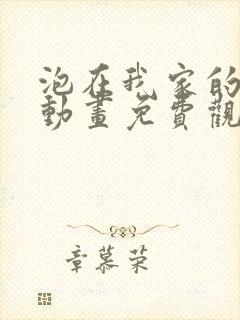 泡在我家的
動畫免費觀
章慕荣